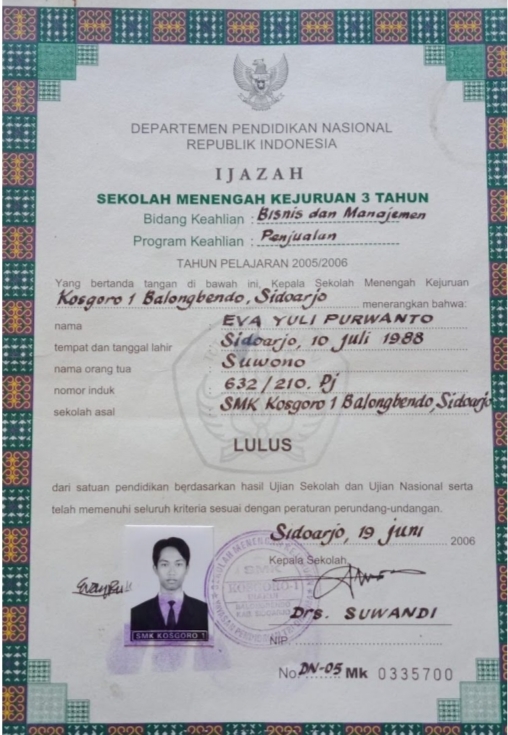 DEPARTEMEN PENDIDIKAN NASIONAL
REPUBLIK INDONESIA
IJAZAH
SEKOLAH MENENGAH KEJURUAN 3 TAHUN
Bidang Keahlian : Bisnis dan Manajemen
Program Keahlian : Penjualan
TAHUN PELAJARAN 2005/2006
Yang bertanda tangan di bawah ini, Kepala Sekolah Menengah Kejuruan
Kosgoro 1 Balongbendo, Sidoarjo menerangkan bahwa:
nama : EVA YULI PURWANTO
tempat dan tanggal lahir : Sidoarjo, 10 juli 1988
nama orang tua : Suwono
nomor induk : 632/210. Pj
sekolah asal : SMK Kosgoro 1 Balongbendo, Sidoarjo
LULUS
dari satuan pendidikan berdasarkan hasil Ujian Sekolah dan Ujian Nasional serta
telah memenuhi seluruh kriteria sesuai dengan peraturan perundang-undangan.
Sidoarjo, 19 juni 2006
Kepala Sekolah,
SMK
KOSGORO-1
Drs. SUWANDI
SMK KOSGORO 1
NIP.
No. DN-05 Mk 0335700